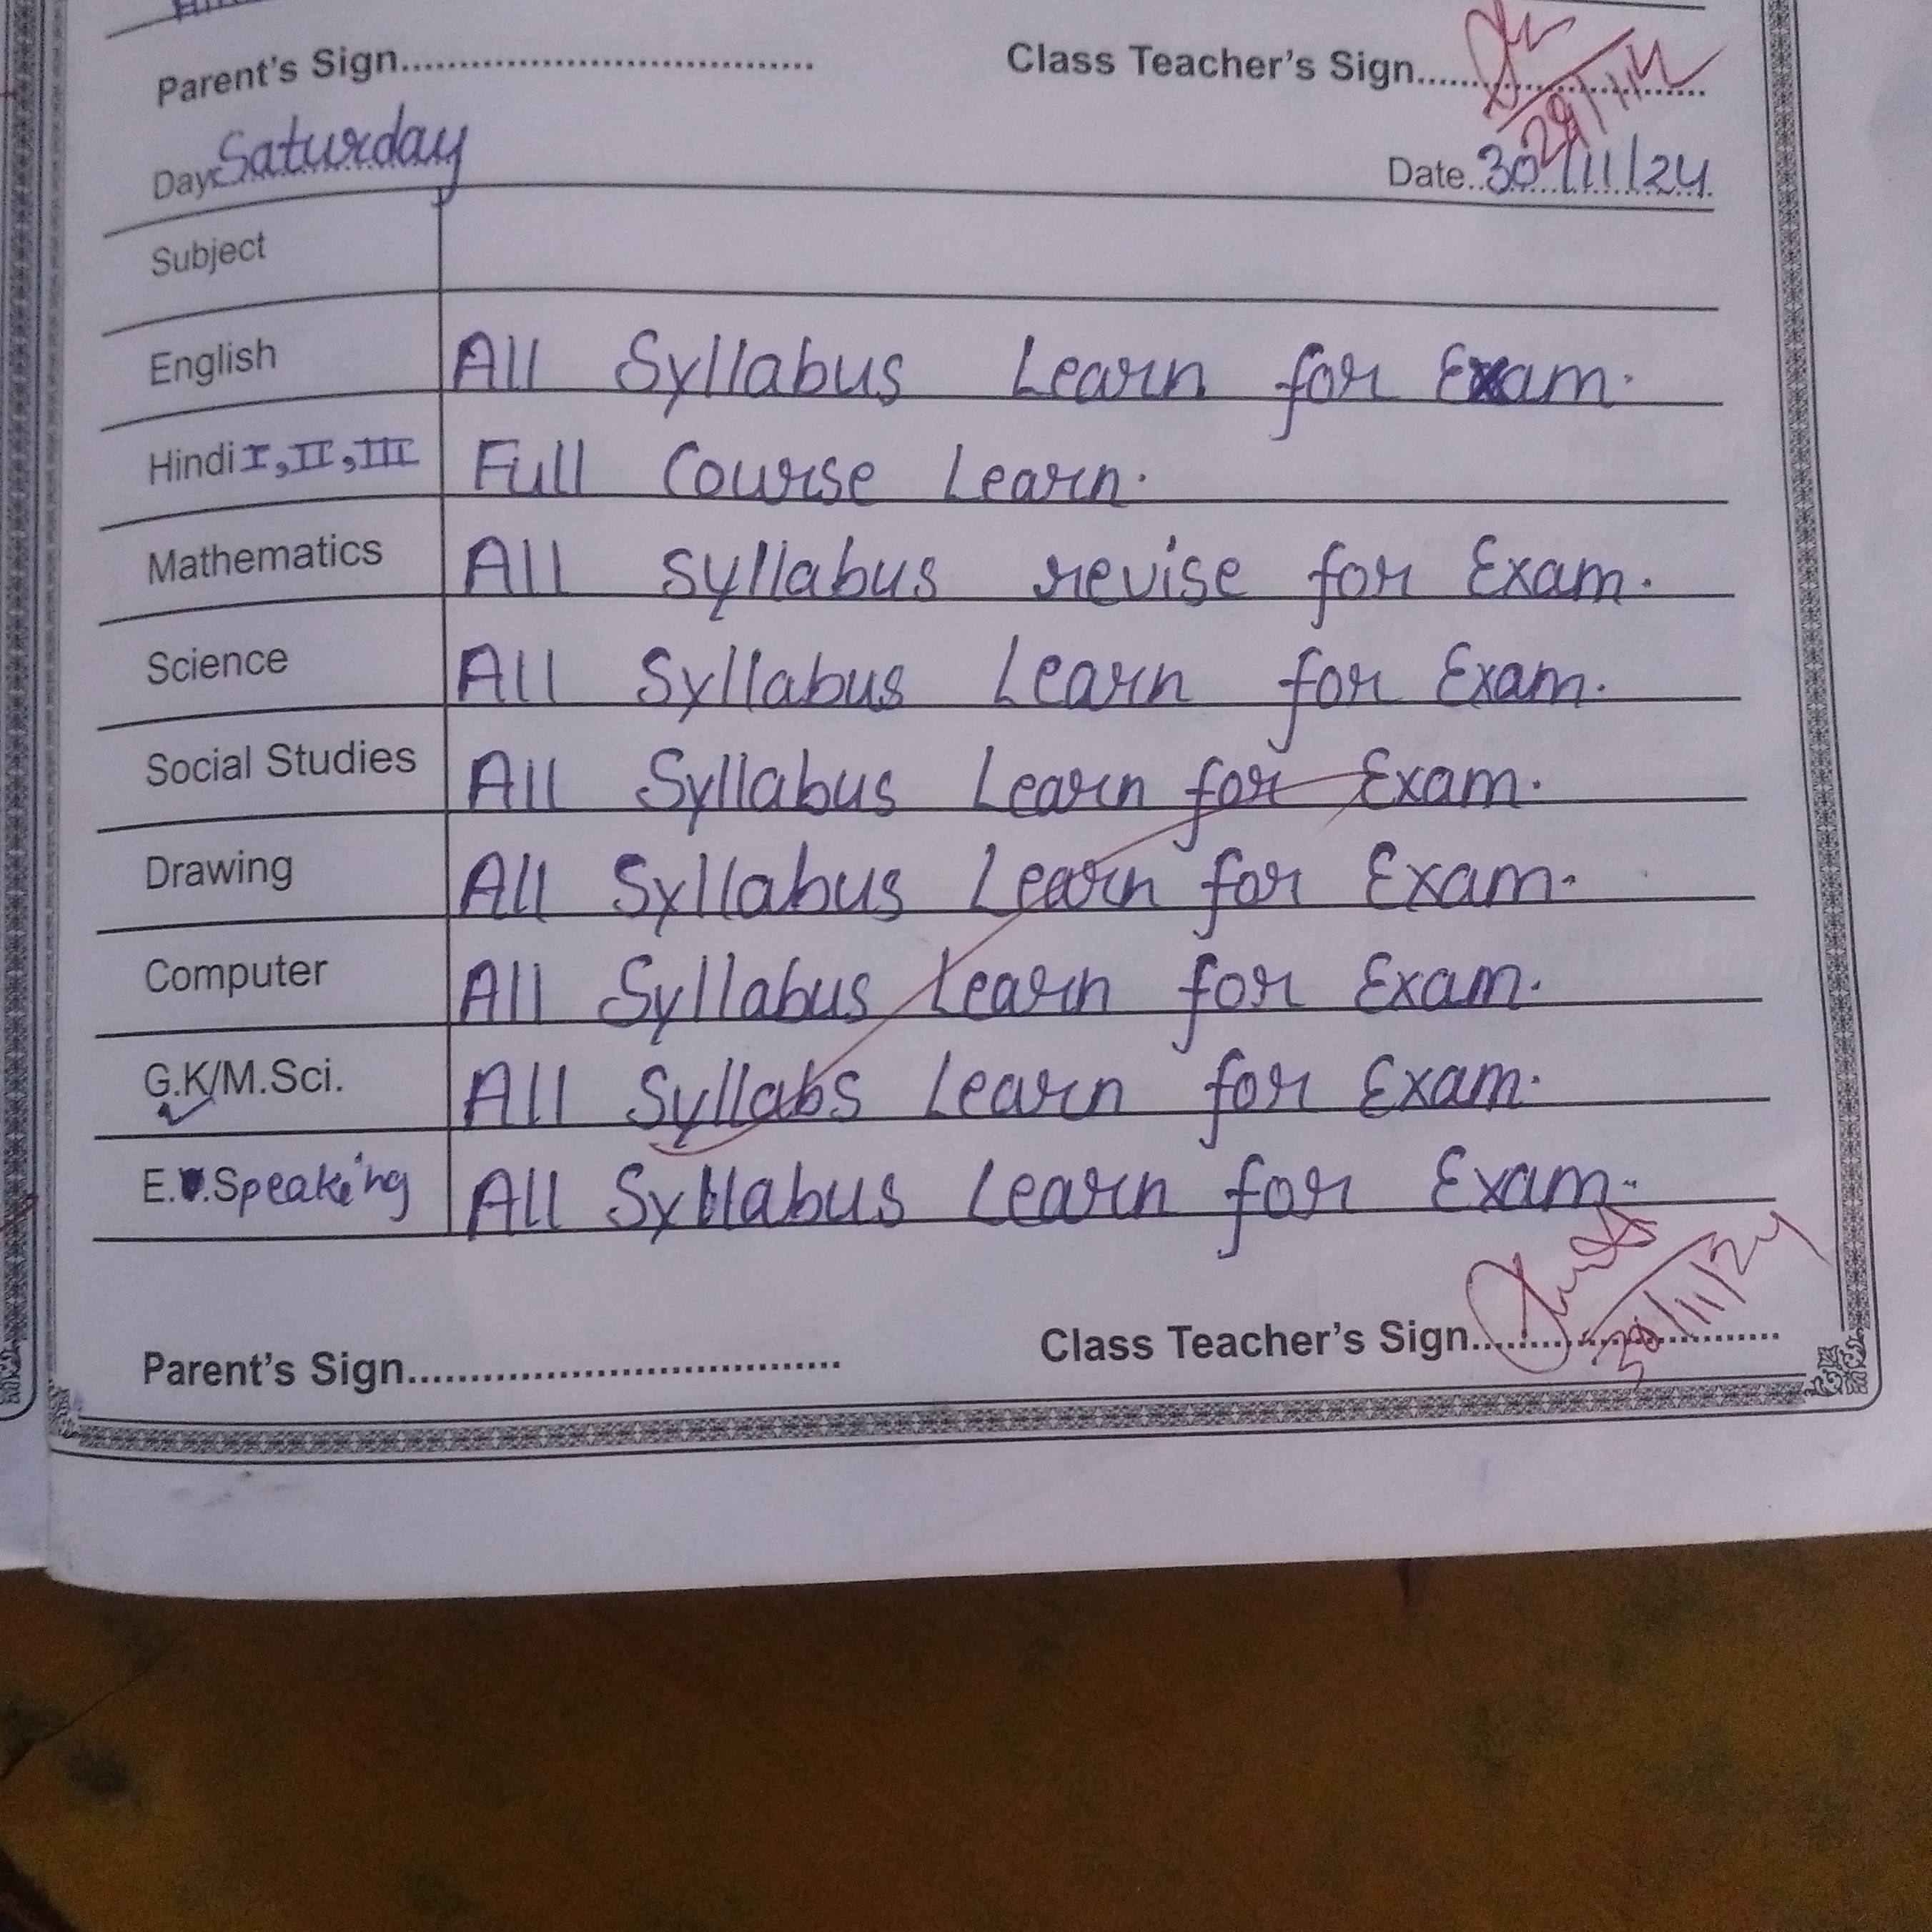 Parent's Sign.................................... Class Teacher's Sign............................
29/11/24
Day: Saturday Date..30/11/24
Subject
English All Syllabus Learn for Exam.
Hindi I, II, III Full Course Learn.
Mathematics All syllabus revise for Exam.
Science All Syllabus Learn for Exam.
Social Studies All Syllabus Learn for Exam.
Drawing All Syllabus Learn for Exam.
Computer All Syllabus Learn for Exam.
G.K/M.Sci. All Syllabs Learn for Exam.
E.Speaking All Syllabus Learn for Exam.
Parent's Sign.................................... Class Teacher's Sign............................
30/11/24